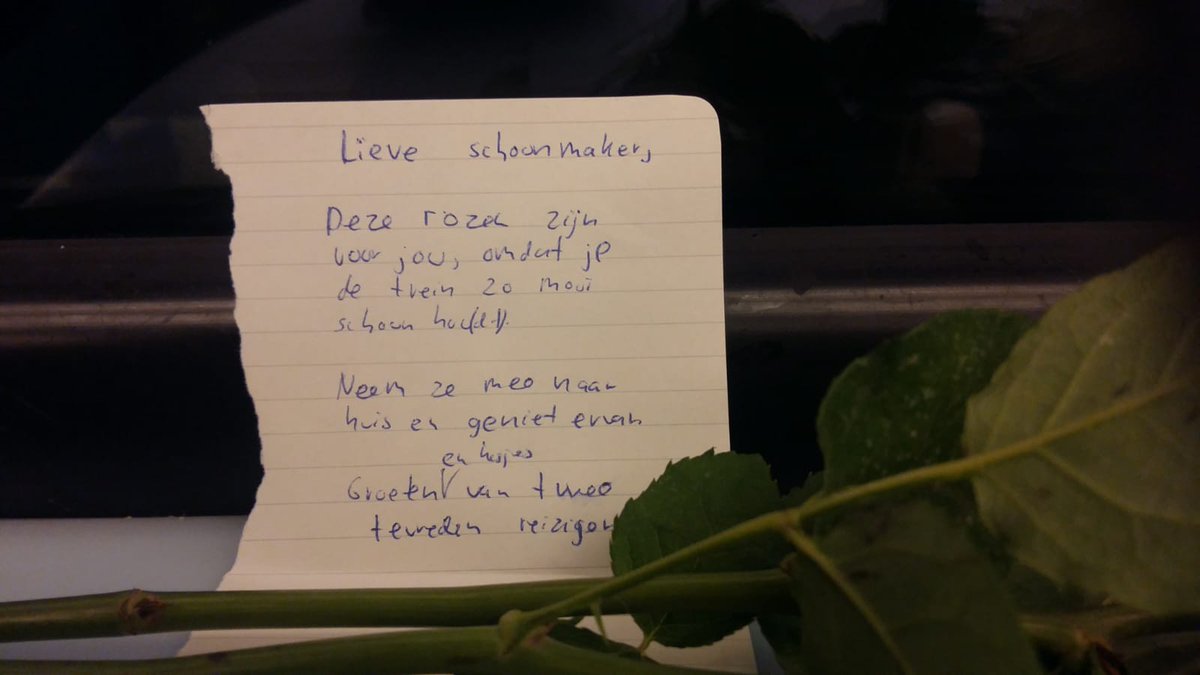 Lieve schoonmaker,
Deze rozen zijn
voor jou, omdat je
de trein zo mooi
schoon houdt.
Neem ze mee naar
huis en geniet ervan
en kusjes
Groeten van twee
tevreden reizigers